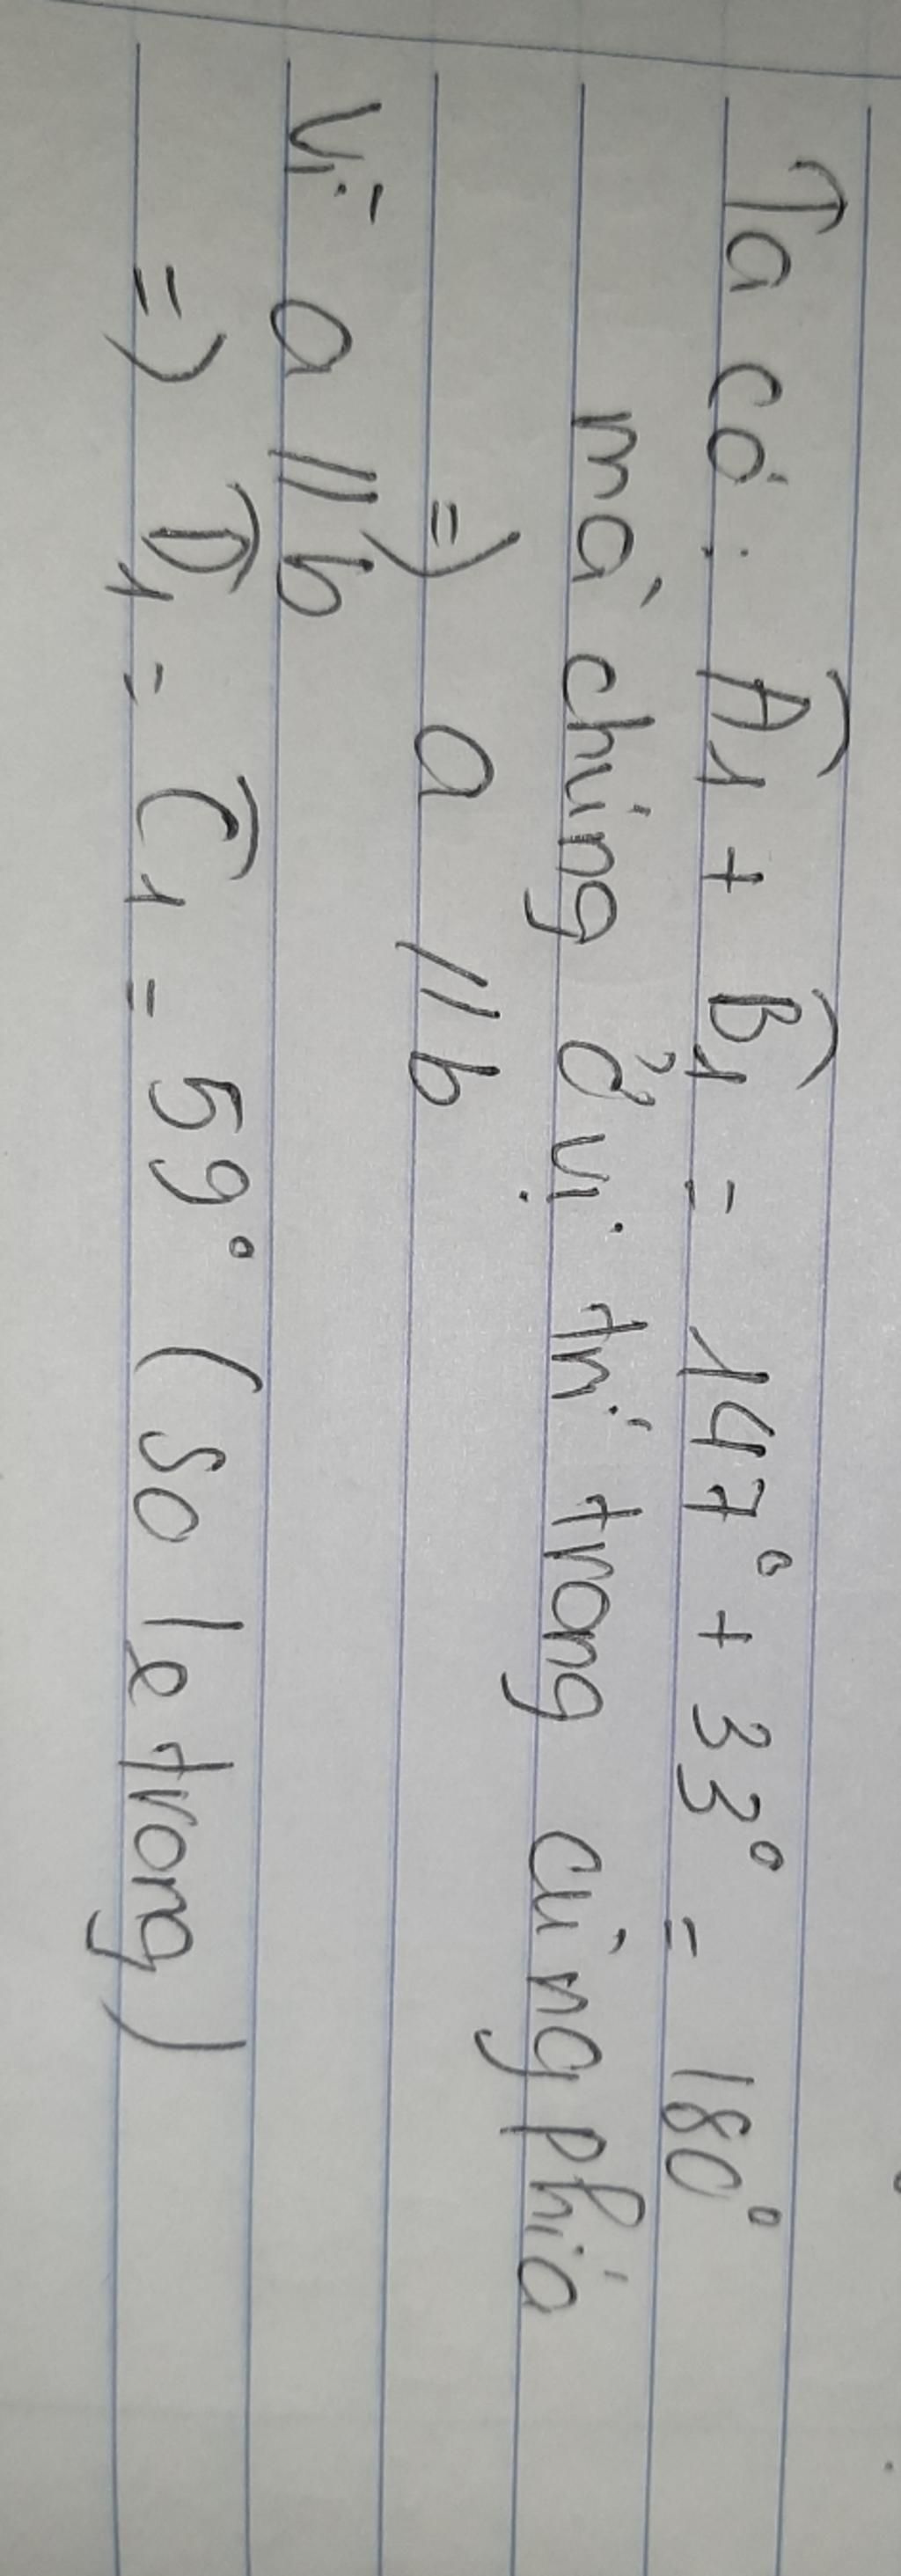 Ta có: Â1 + B̂1 = 147° + 33° = 180°
mà chúng ở vị trí trong cùng phía
=) a // b
Vì a // b
=) D̂1 = Ĉ1 = 59° (so le trong)